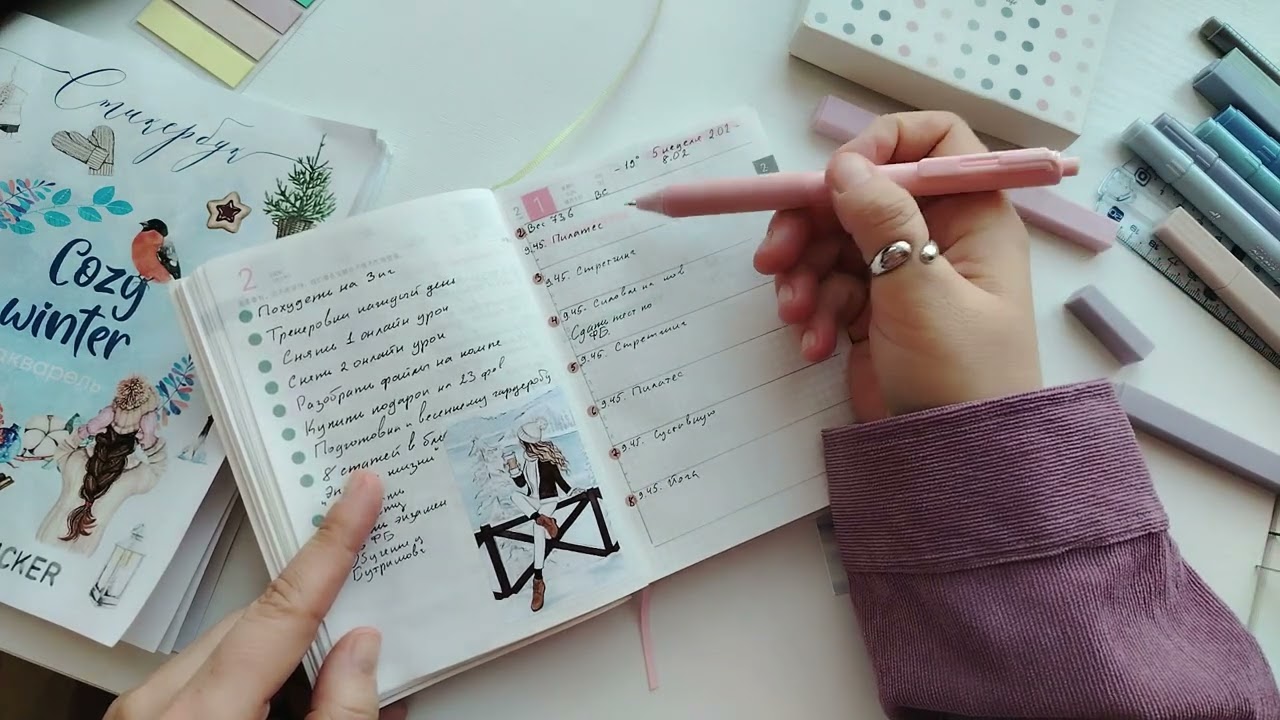 Стикербук
Cozy
winter
акварель
2
Похудеть на 3 кг
Тренеровки каждый день
Снять 1 онлайн урок
Снять 2 онлайн урок
Разобрать файлы на компе
Купить подарок на 23 фев
Подготовка к весеннему гардеробу
8 статей в бло
жизни"
экзамен
ФБ
2 1 Вс -19° 5 неделя 2.02 -
8.02
2 Вес 73.6
9.45. Пилатес
3 9.45. Стретчинг
4 9.45. Силовая на
Сдать тест по
ФБ
5 9.45. Стретчинг
6 9.45. Пилатес
9.45. Суставную
8 9.45. Йога
2